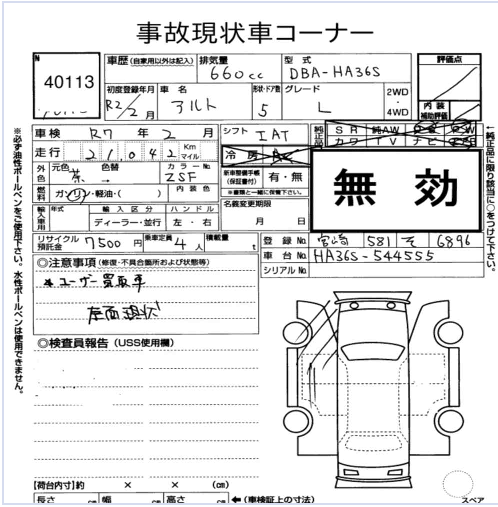 事故現状車コーナー
N
40113
車歴 (自家用以外は記入)
排気量
660cc
型式
DBA-HA36S
評価点
初度登録年月
R2/2月
車名
アルト
形状・ドア数
5
グレード
L
2WD
・
4WD
内装
補助評価
車検 R7 年 2 月
シフト IAT
純正品
SR 純AW
カワ TV ナビ
走行 21,042 Km マイル
冷房
外色
元色
茶→
色替
カラーNo.
ZSF
新車整備手帳
(保証書付)
有・無
※書類と一緒に保管下さい。
燃料
ガソリン・軽油・( )
内装色
名義変更期限
月 日
無効
輸入車用
年式
輸入区分
ディーラー・並行
ハンドル
左・右
リサイクル預託金
7500円
乗車定員
4人
積載量
t
登録No.
宮崎 581 そ 6896
車台No.
HA36S-544555
シリアルNo.
◎注意事項 (修復・不具合箇所および状態等)
*ユーザー買取車
左面現状
◎検査員報告 (USS使用欄)
【荷台内寸】約 × × (cm)
長さ cm 幅 cm 高さ cm
←(車検証上の寸法)
スペア
※必ず油性ボールペンをご使用下さい。水性ボールペンは使用できません。
←純正品に限り該当に○をつけて下さい。